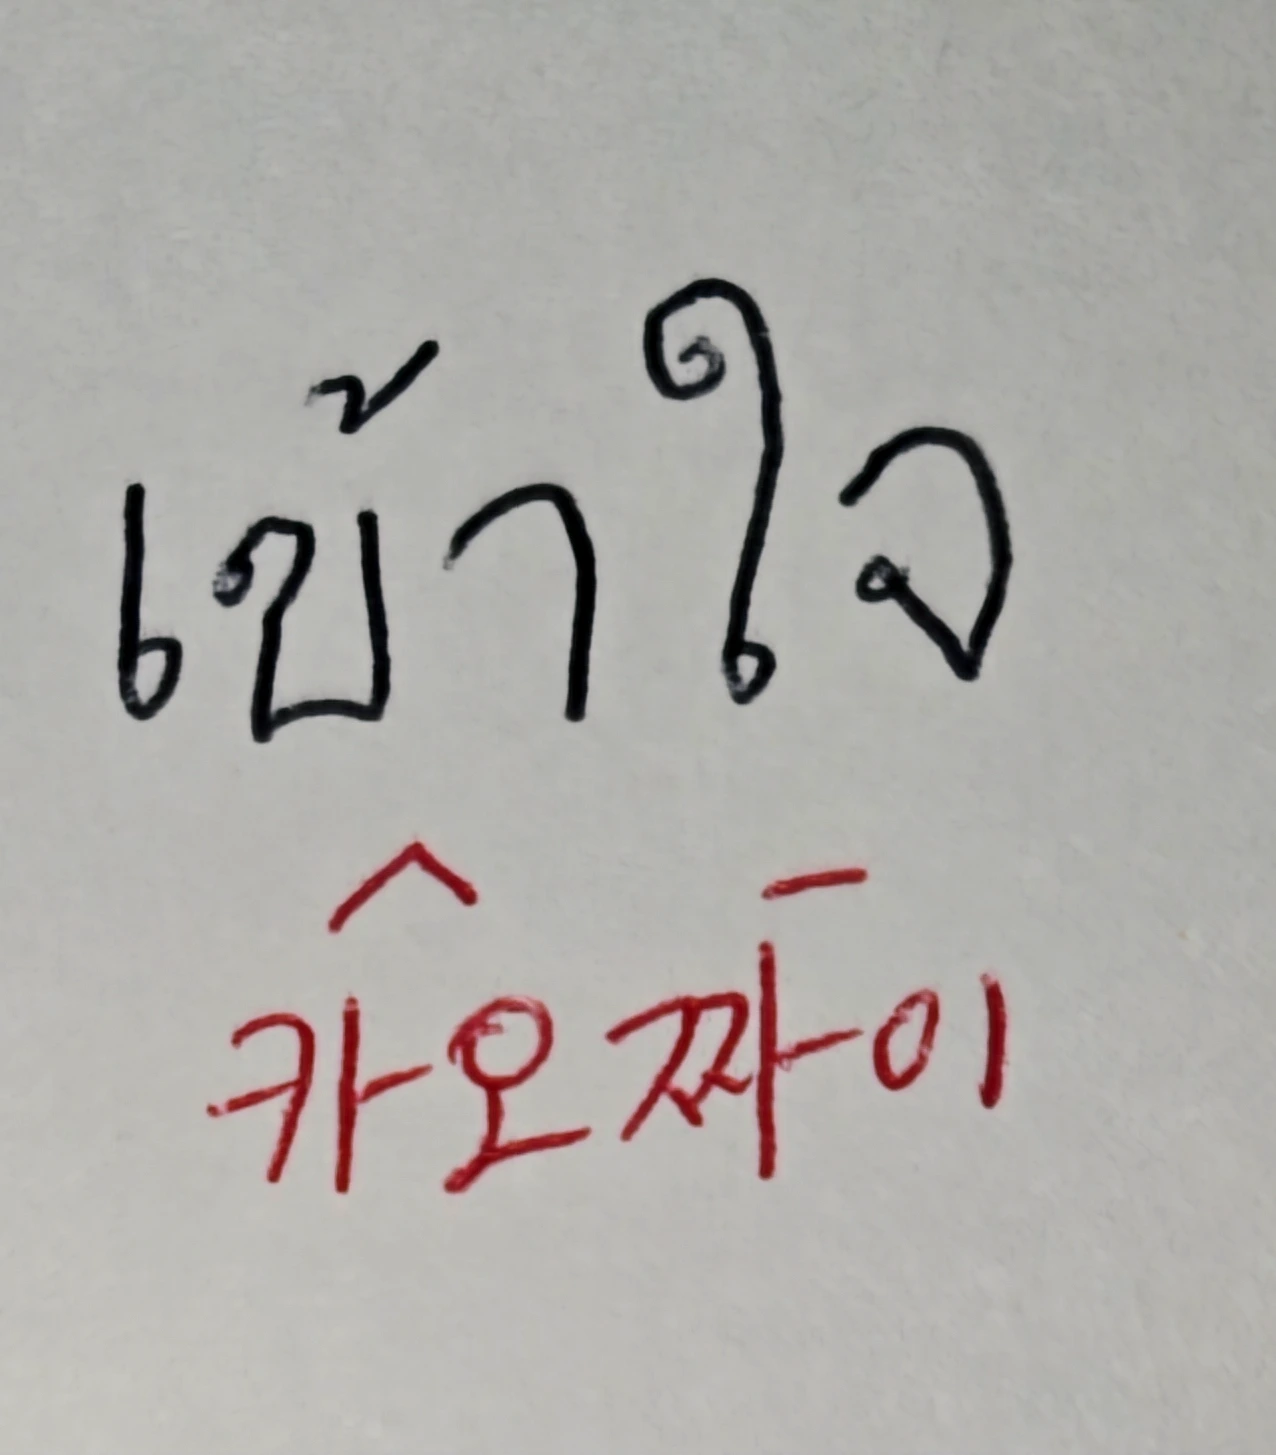 เข้าใจ
카오짜이